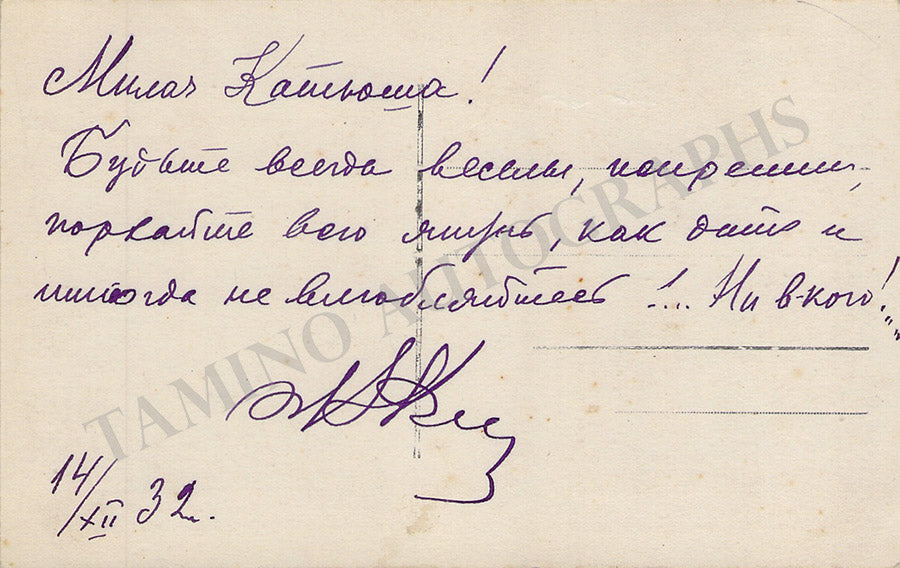 Милая Катюша!
Будьте всегда веселы, капризны,
порхайте всю жизнь, как дитя и
никогда не влюбляйтесь !... Ни в кого!..
14/XII 32 г.
TAMINO AUTOGRAPHS